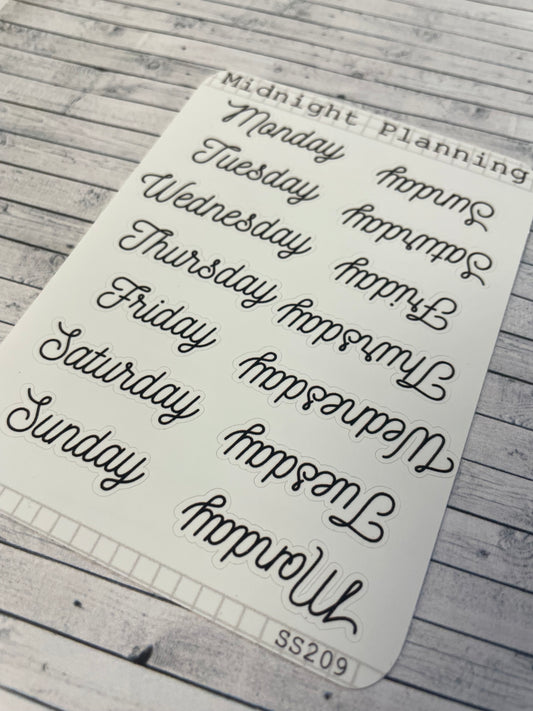 Midnight Planning
Monday
Tuesday
Wednesday
Thursday
Friday
Saturday
Sunday
Sunday
Saturday
Friday
Thursday
Wednesday
Tuesday
Monday
SS209